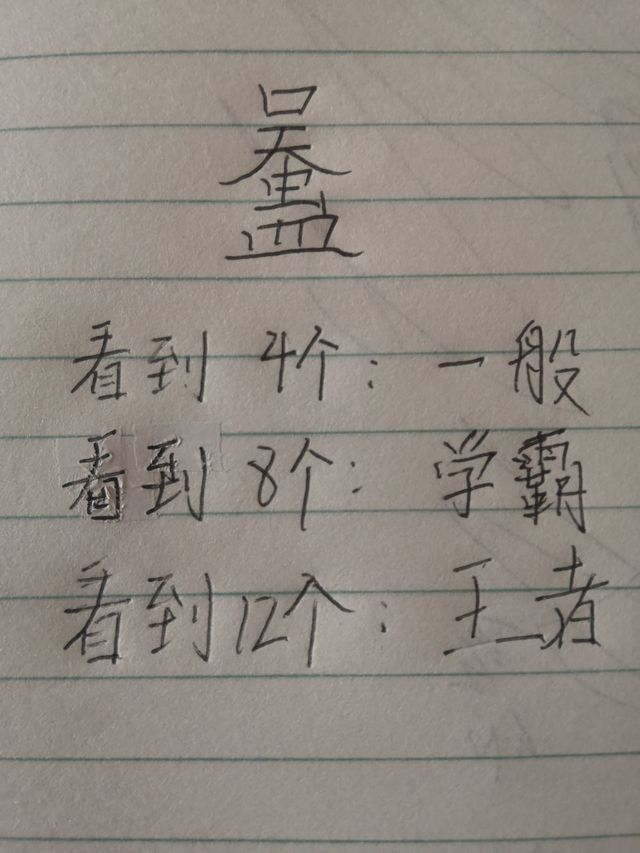 看到4个：一般
看到8个：学霸
看到12个：王者